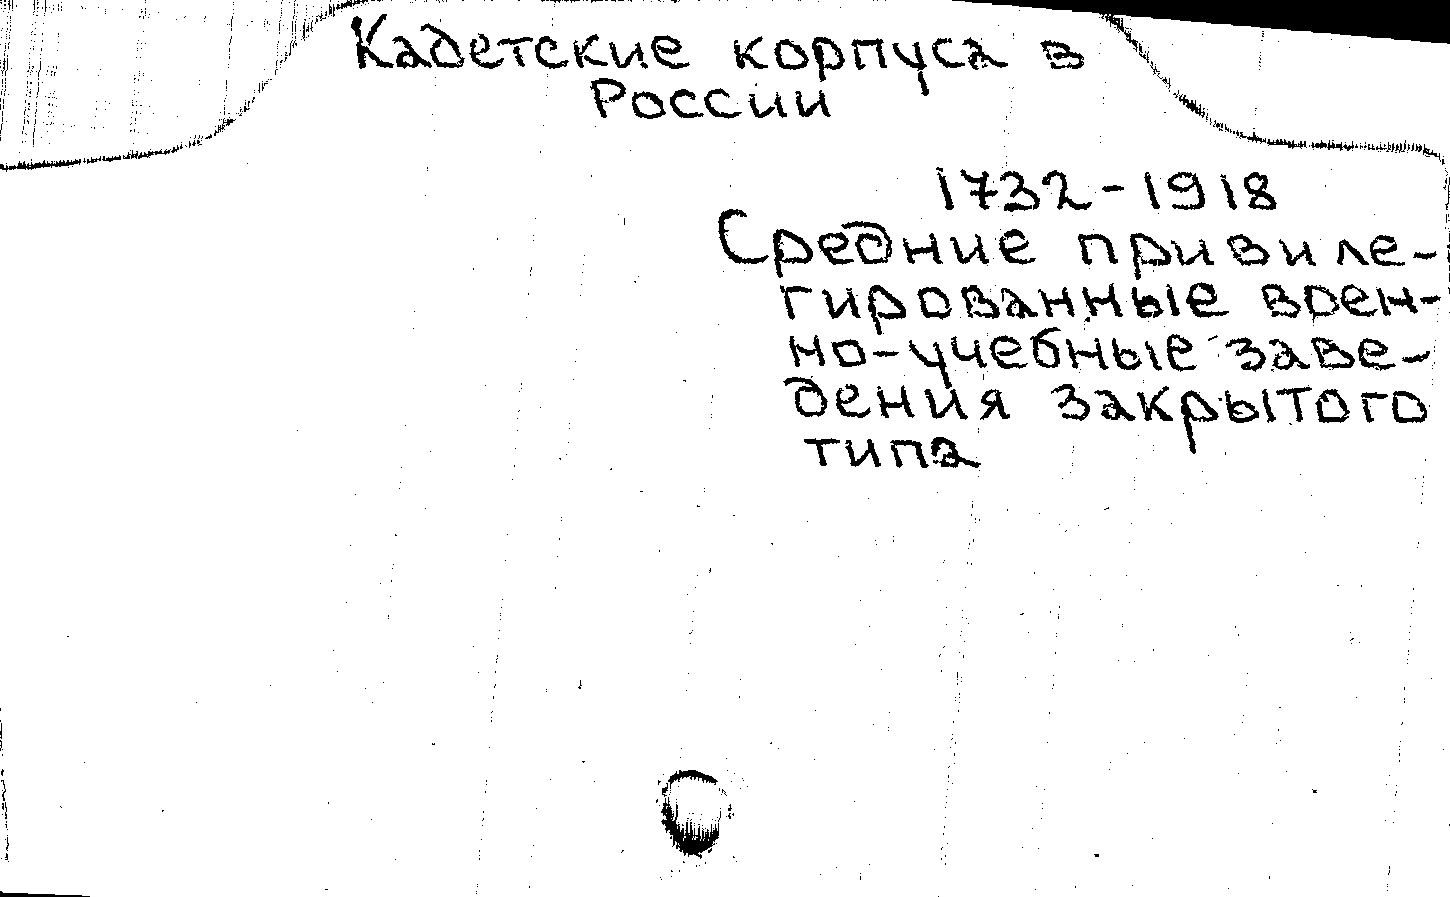 Кадетские корпуса в
России
1732-1918
Средние привиле-
гированные воен-
но-учебные заве-
дения закрытого
типа